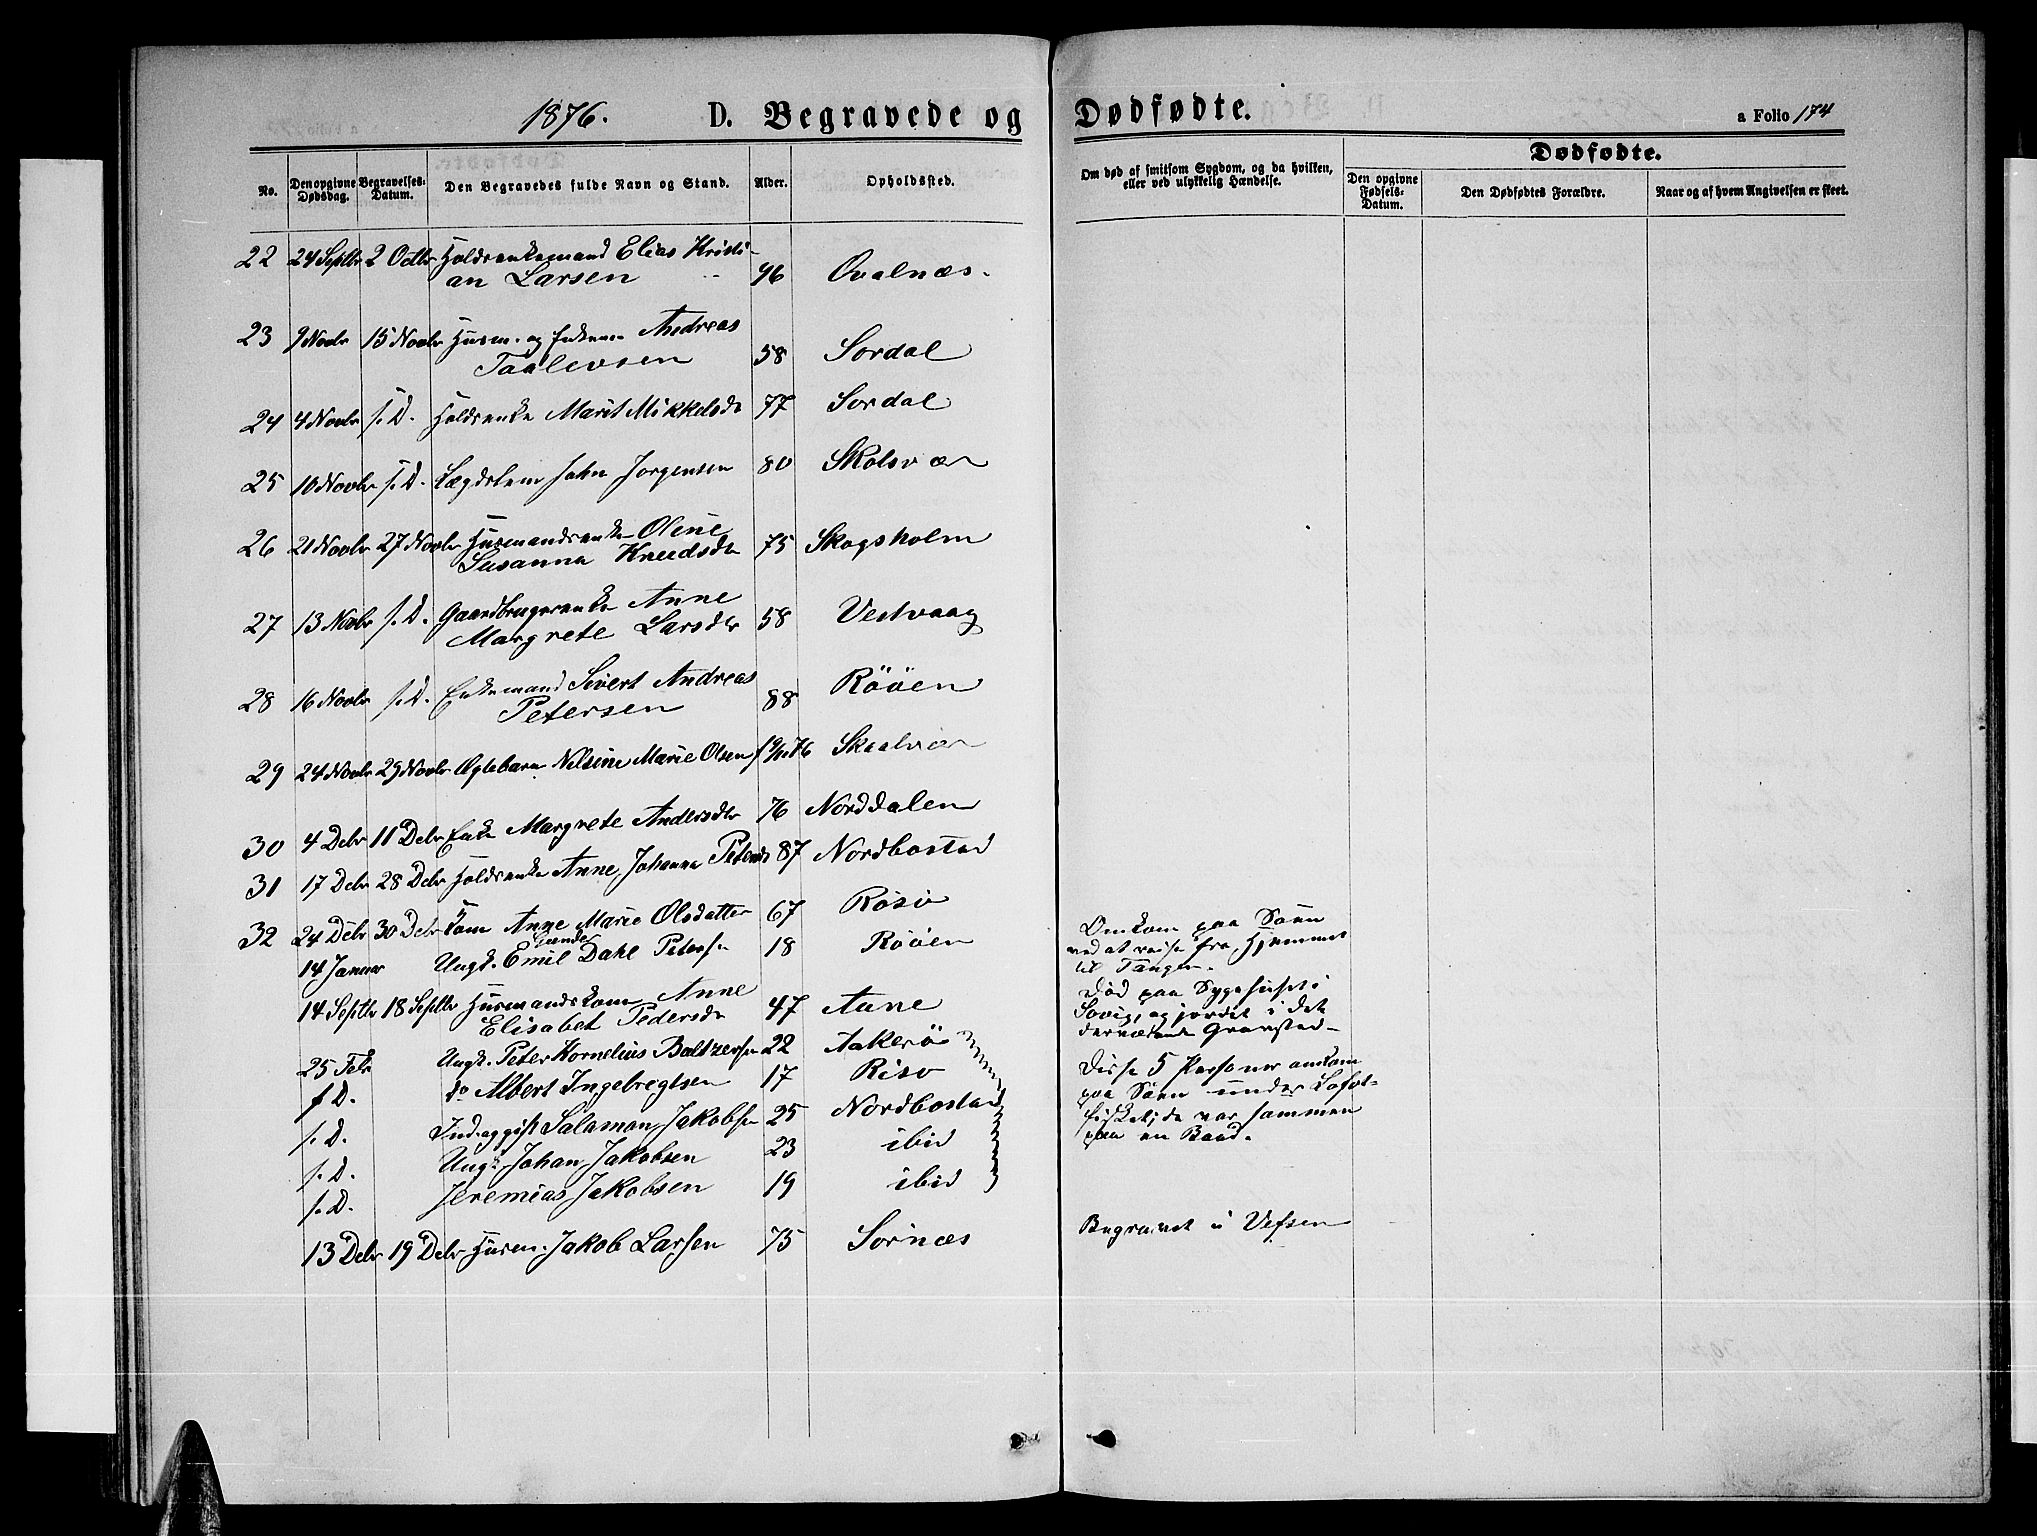 1876. D. Begravede og Dødfødte. a Folio 174
No. Den opgivne Dødsdag. Begravelses-Datum. Den Begravedes fulde Navn og Stand. Alder. Opholdssted. Om død af smitsom Sygdom, og da hvilken, eller ved ulykkelig Hændelse. Dødfødte.
Den opgivne Fødsels-Datum. Den Dødfødtes Forældre. Naar og af hvem Angivelsen er skeet.
22 24 Septbr 2 Octbr Holdsenkemand Elias Kristi-
an Larsen 46 Ovalnæs.
23 9 Novbr 15 Novbr Husm. og Enkem Andreas
Taalevsen 58 Sørdal
24 4 Novbr s. D. Holdsenke Marit Mikkelsdr 77 Sørdal
25 10 Novbr s. D. Lægdslem John Jørgensen 80 Skolsvær
26 21 Novbr 27 Novbr Husmandsenke Oline
Susanna Knudsdr 75 Skogsholm
27 13 Novbr s. D. Gaardbrugerenke Anne
Margrete Larsdtr 58 Vestvaag
28 16 Novbr s. D. Enkemand Sivert Andreas
Petersen 88 Rööen
29 24 Novbr 29 Novbr Ægtebarn Nilsine Marie Olsen f 9/11 76 Skaalvær
30 4 Debr 11 Debr Enke Margrete Andersdtr 76 Norddalen
31 17 Debr 28 Debr Holdsenke Anne Johanna Petersdr 87 Nordbostad
32 24 Debr 30 Debr Kone Anne Marie Olsdatter 67 Risø
14 Januar Ungk. Emil Gunder Dahl Petersen 18 Rööen
Omkom paa Søen
ved at reise fra Hjemmet
til Tangen.
14 Septbr 18 Septbr Husmandskone Anne
Elisabet Pedersdr 47 Aune
Död paa Sygehuset i
Søvig, og jordet i det
derværende Gravsted
25 Febr Ungk. Peter Kornelius Baltzersen 22 Aakerö
s D. do Albert Ingebregtsen 17 Risø
s. D. Ind. og gift Salamon Jakobsen 25 Nordbostad
s. D. Ungk. Johan Jakobsen 23 ibid
s. D. Jeremias Jakobsen 19 ibid
Disse 5 Personer omkom
paa Søen under Lofot-
fisket; de var sammen
paa en Baad.
13 Debr 19 Debr Husm. Jakob Larsen 75 Sørnæs Begravet i Vefsen